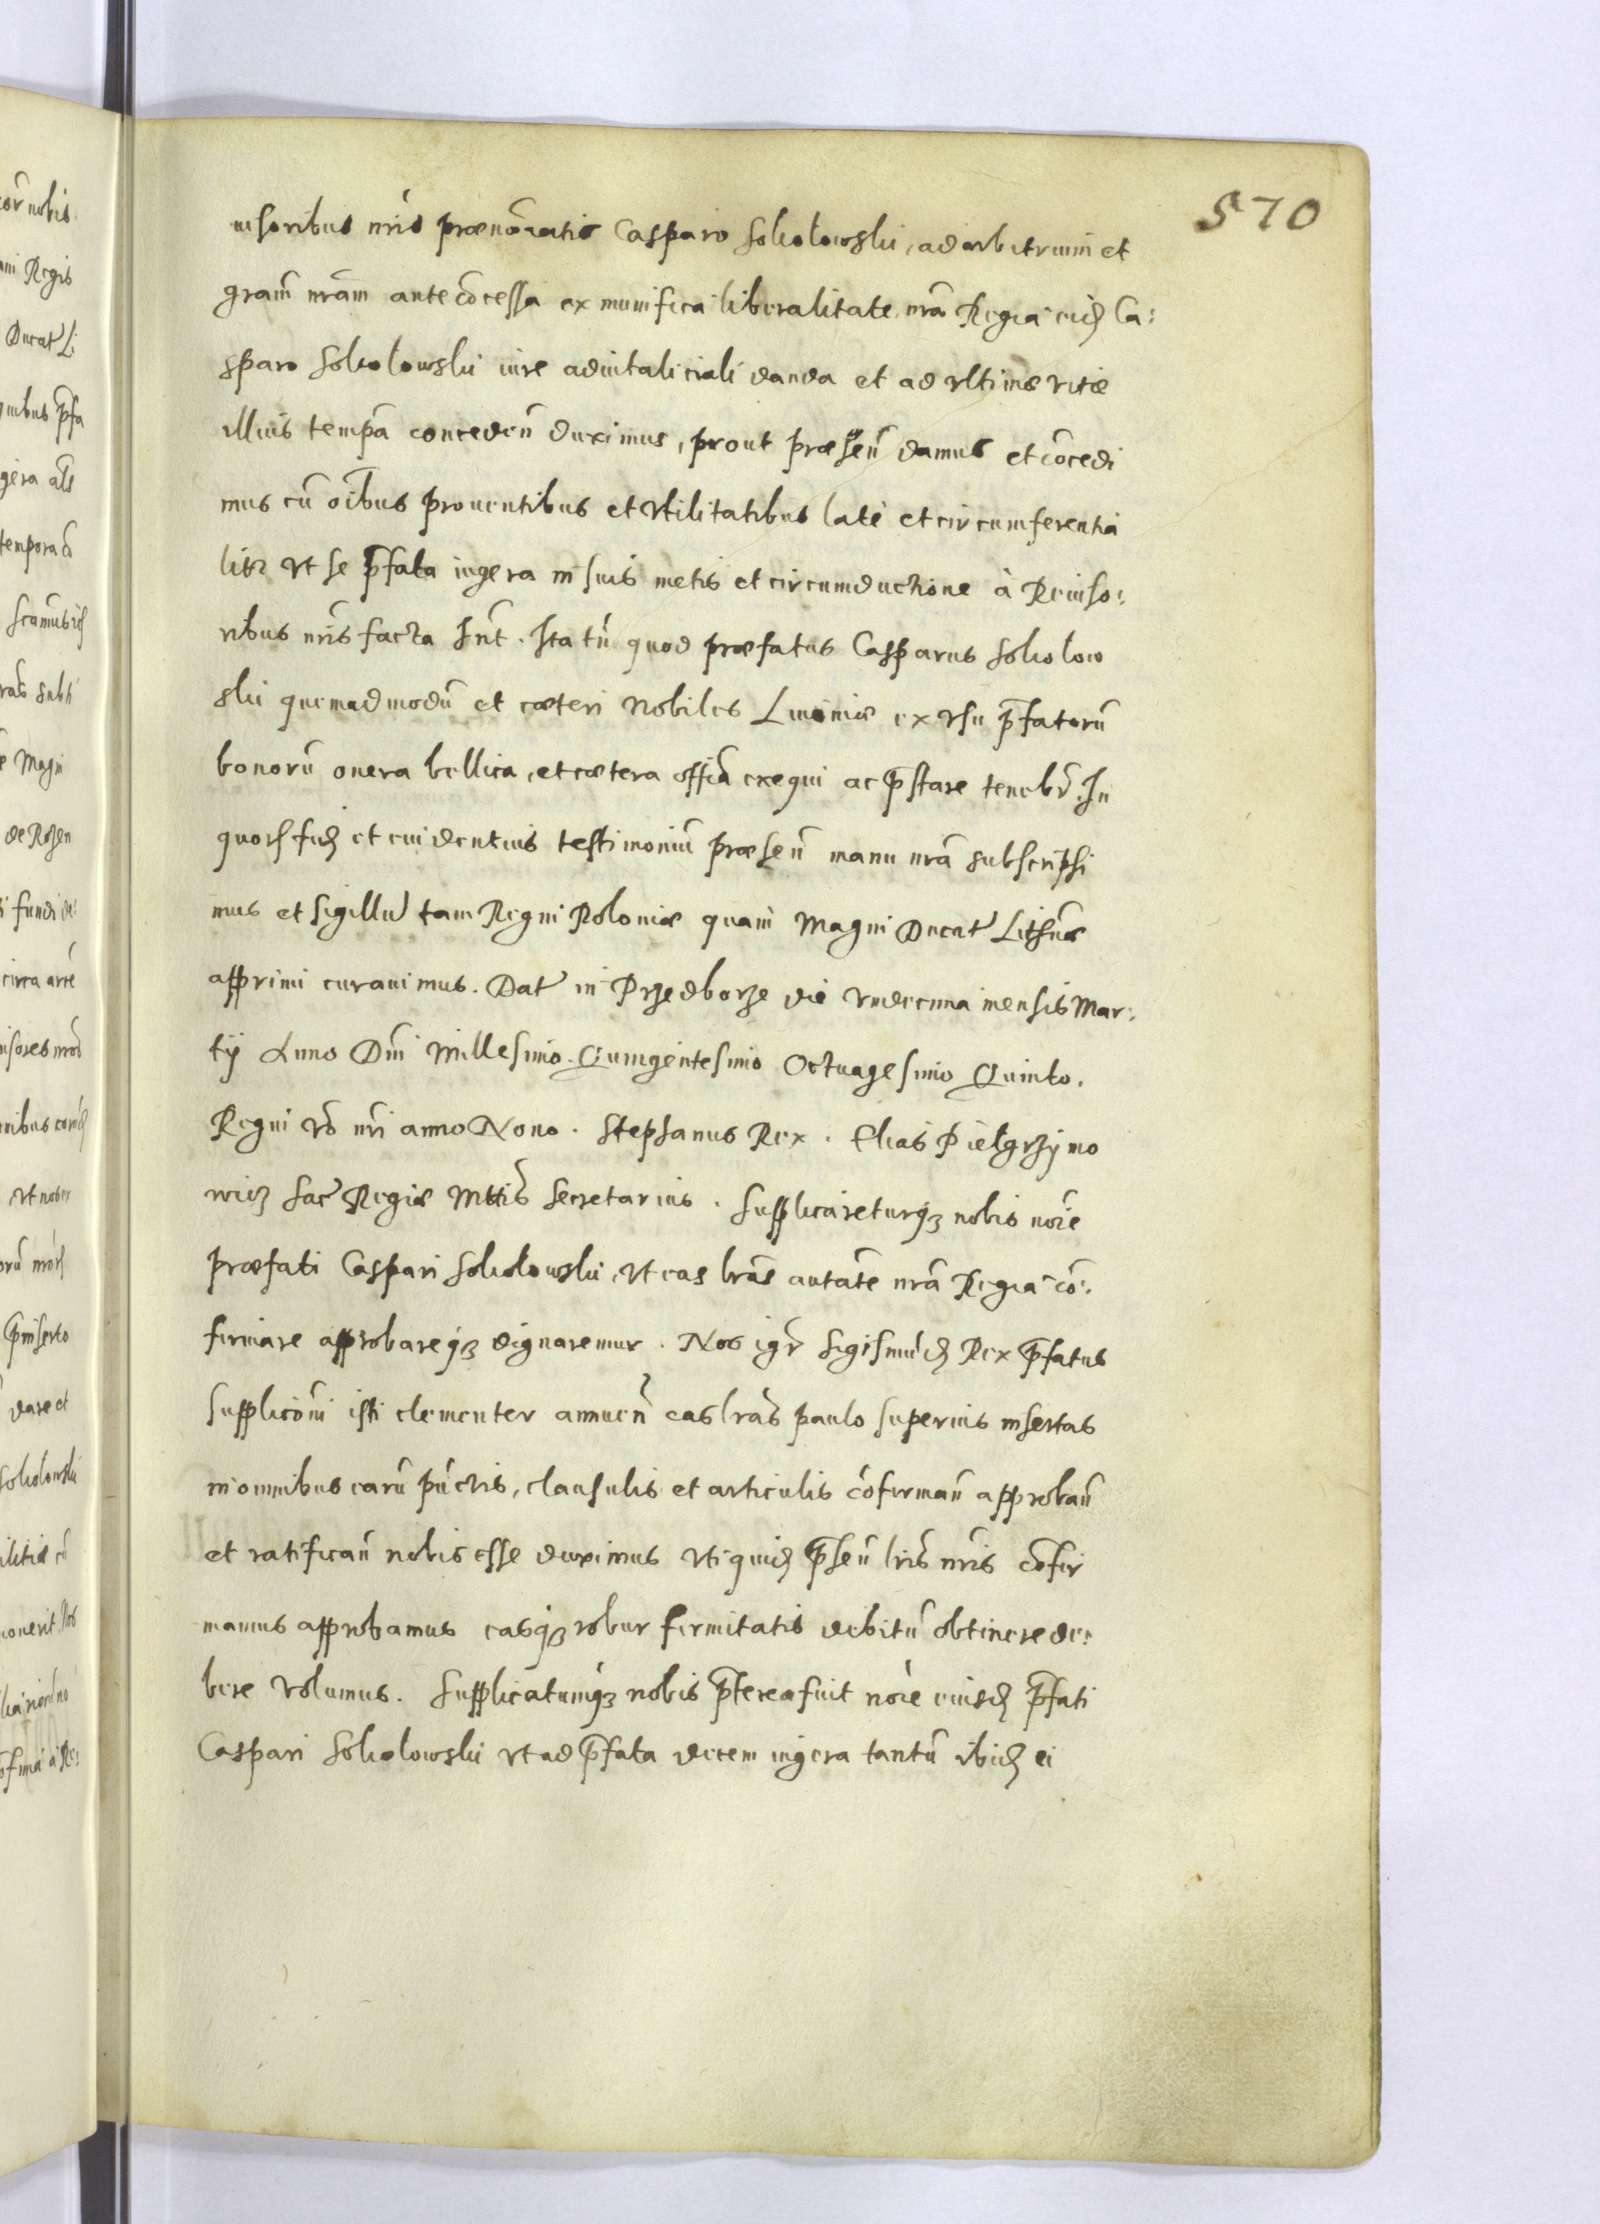 570
uisoribus nr̃is prænoĩatis Casparo Sokolowski, ad arbitrium et
gr̃am nr̃am ante cõcessa ex munifica liberalitate nr̃a Regia eidẽ Ca:
sparo Sokolowski iure aduitaliciali danda et ad vltima vitæ
illius tempa concedeñ duximus, prout præseñ damus et cõcedi
mus cũ oĩbus prouentibus et vtilitatibus latè et circumferentia
litr vt se p̃fata iugera in suis metis et circumductione à Reuiso:
ribus nr̃is facta hñt. Ita tñ quod præfatus Casparus Sokolow
ski quemadmodũ et cæteri Nobiles Liuoniæ ex vsu p̃fatorũ
bonorũ onera bellica, et cætera offia exequi ac p̃stare tenebr̃. In
quorũ fidẽ et euidentius testimoniũ præseñ manu nr̃a subscripsi
mus et sigillũ tam Regni Poloniæ quam Magni Ducat Lithũæ
apprimi curauimus. Dat in Przedborze die vndecima mensis Mar:
tij Anno Dñi Millesimo Quingentesimo Octuagesimo Quinto.
Regni vo nr̃i anno Nono. Stephanus Rex. Elias Pielgrzymo
wicz Sac Regiæ Mttis Secretarius. Supplicareturq3 nobis noĩe
præfati Caspari Sokolowski, vt eas lr̃as autãte nr̃a Regia cõ:
firmare approbareq3 dignaremur. Nos igr̃ Sigismũdẽ Rex p̃fatus
supplicõni isti clementer annueñ eas lr̃as paulo superius insertas
in omnibus earũ pũctis, clausulis et articulis cõfirmañ approbañ
et ratificañ nobis esse duximus vti quidẽ p̃señ lr̃is nr̃is cõfir
mamus approbamus easq3 robur firmitatis debitũ obtinere de:
bere volumus. Supplicatumq3 nobis p̃terea fuit noĩe eiusdẽ p̃fati
Caspari Sokolowski vt ad p̃fata decem iugera tantũ ibidẽ ei